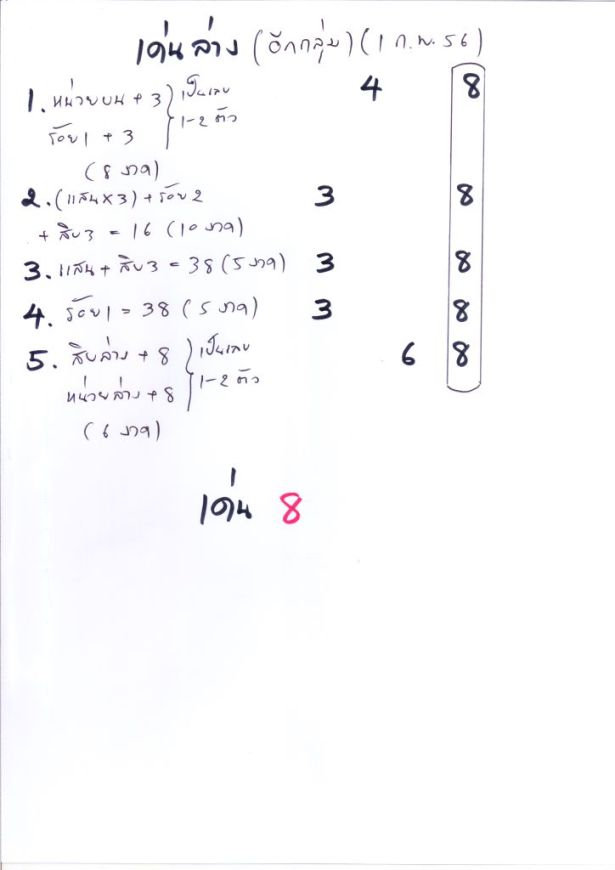 เด่นล่าง (อีกกลุ่ม) (1 ก.พ. 56)
1. หน่วยบน + 3 } เป็นเลข 4 8
ร้อย 1 + 3 } 1-2 ตัว
(8 งวด)
2. (แสน x 3) + ร้อย 2 3 8
+ สิบ 3 = 16 (10 งวด)
3. แสน + สิบ 3 = 38 (5 งวด) 3 8
4. ร้อย 1 = 38 (5 งวด) 3 8
5. สิบล่าง + 8 } เป็นเลข 6 8
หน่วยล่าง + 8 } 1-2 ตัว
(6 งวด)
เด่น 8